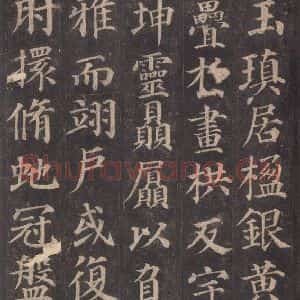 玉瑱居楹銀黃
疊扵畫栱反宇
坤靈贔屭以負
雅而翊戶或復
肘擐脩虵冠盤
Shufawang.Cn